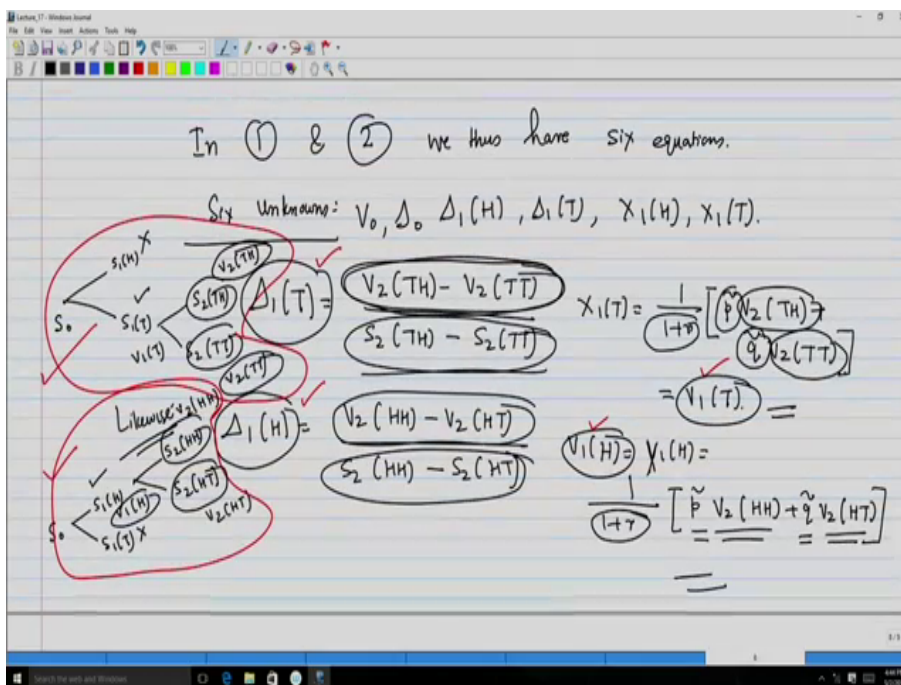 Lecture_17 - Windows Journal
File Edit View Insert Actions Tools Help
B I
In ① & ② we thus have six equations.
Six unknowns: V₀, Δ₀ Δ₁(H), Δ₁(T), X₁(H), X₁(T).
S₀ S₁(H) X
S₁(T) ✓
V₁(T)
V₂(TH)
S₂(TH)
S₂(TT)
V₂(TT)
Δ₁(T) = V₂(TH) - V₂(TT)
S₂(TH) - S₂(TT)
X₁(T) = 1/(1+r) [p̃ V₂(TH) +
q̃ V₂(TT)]
= V₁(T).
Likewise V₂(HH)
S₂(HH)
S₁(H)
V₁(H)
S₂(HT)
V₂(HT)
S₀ S₁(T) X
Δ₁(H) = V₂(HH) - V₂(HT)
S₂(HH) - S₂(HT)
V₁(H) = X₁(H) =
1/(1+r) [p̃ V₂(HH) + q̃ V₂(HT)]
Search the web and Windows